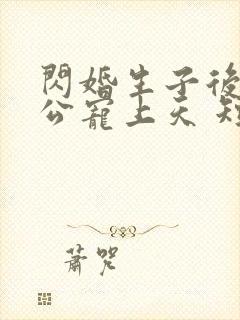 閃婚生子後
公寵上天 短
蕭咒